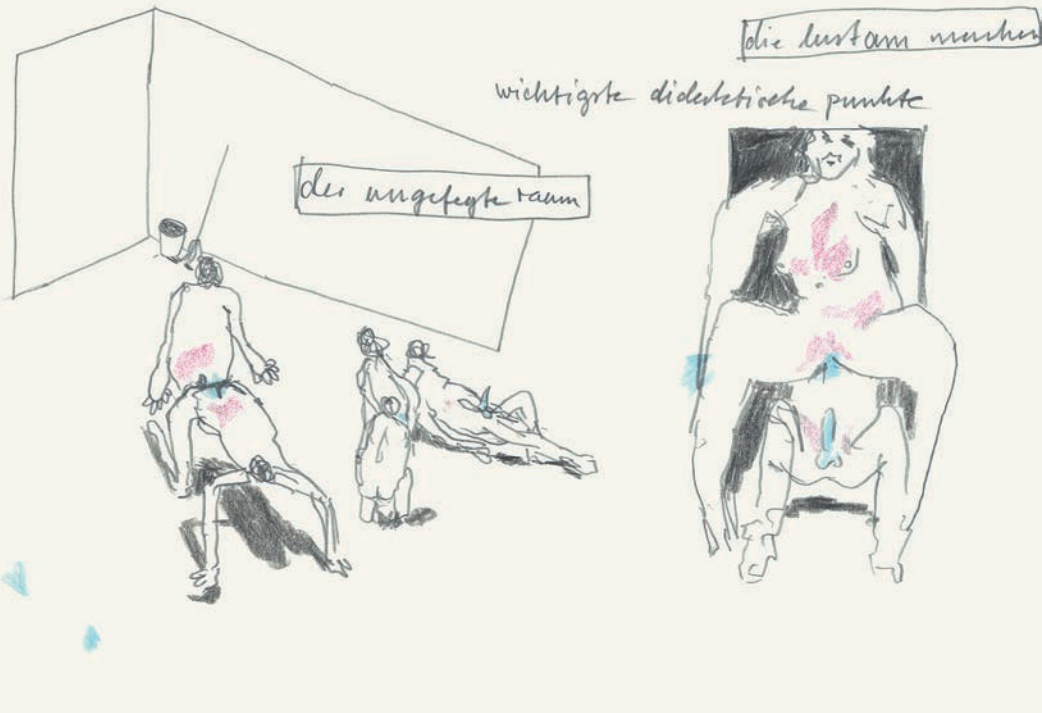 die lust am machen
wichtigste didaktische punkte
der ungefegte raum